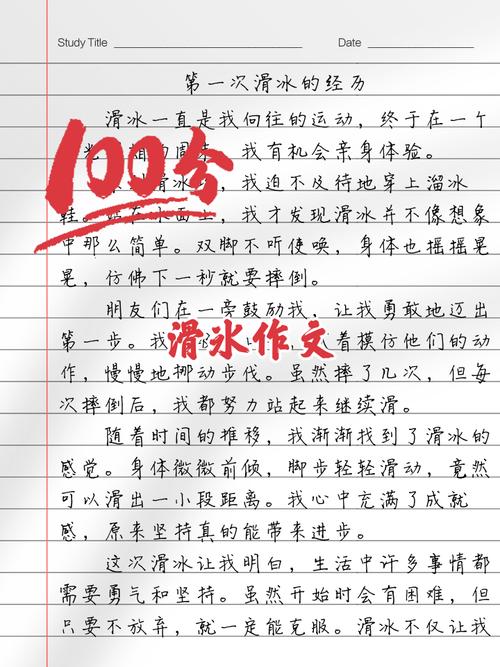 Study Title Date
第一次滑冰的经历
滑冰一直是我向往的运动，终于在一个
我有机会亲身体验。
100分
滑冰 我迫不及待地穿上溜冰
鞋。站在冰面上，我才发现滑冰并不像想象
中那么简单。双脚不听使唤，身体也摇摇晃
晃，仿佛下一秒就要摔倒。
朋友们在一旁鼓励我，让我勇敢地迈出
第一步。我 着模仿他们的动
滑冰作文
作，慢慢地挪动步伐。虽然摔了几次，但每
次摔倒后，我都努力站起来继续滑。
随着时间的推移，我渐渐找到了滑冰的
感觉。身体微微前倾，脚步轻轻滑动，竟然
可以滑出一小段距离。我心中充满了成就
感，原来坚持真的能带来进步。
这次滑冰让我明白，生活中许多事情都
需要勇气和坚持。虽然开始时会有困难，但
只要不放弃，就一定能克服。滑冰不仅让我